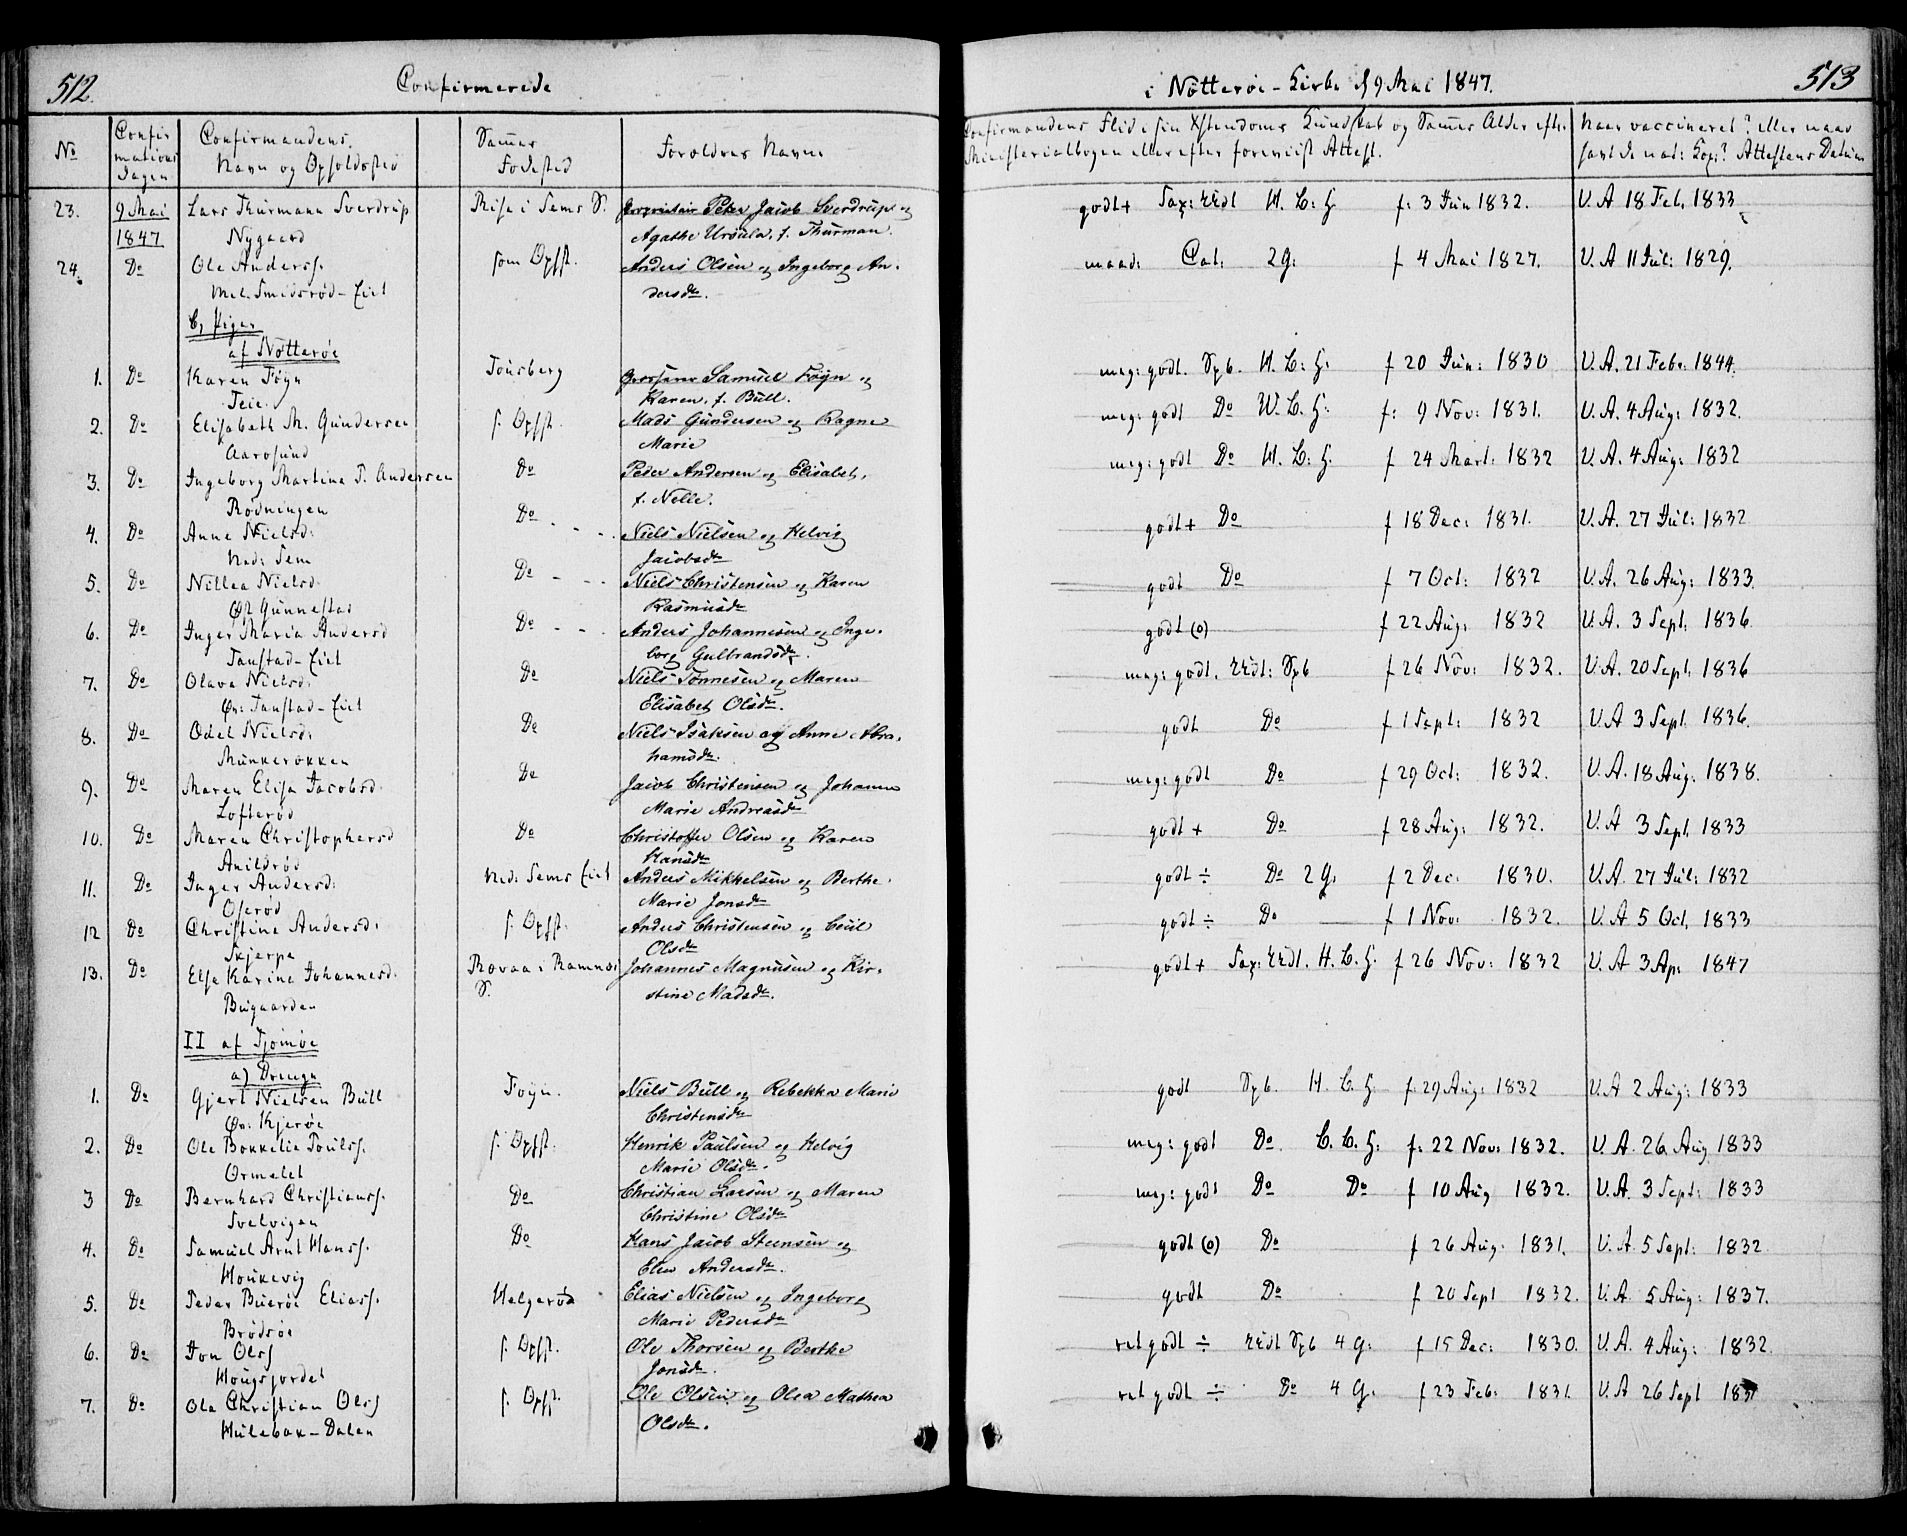 512. Confirmerede
i Nötterøi-Kirke d 9 Mai 1847. 513
No
Confir
mations
dagen
Confirmandens
Navn og Opholdssted
Sammes
Fødested
Forældres Navn.
Confirmandens Flid i sin Xstendoms Kundskab og Sammes Alder efter
Ministerialbogen eller efter foreviist Attest.
Naar vaccineret? eller naar
havt de nat: Kop:? Attestens Datum
23. 9 Mai Lars Thurmann Sverdrup Rise i Sems S. Proprietair Peter Jacob Sverdrup og godt+ H. L: H f: 3 Jun 1832. V. A 18 Feb. 1833
1847 Nygaard Agathe Ursula, f. Thurman.
24. Do Ole Anderss. som Opsst. Anders Olsen og Ingeborg An- maad: Cat: 2 G: f 4 Mai 1827. V. A 11 Jul: 1829.
Mel. Smidsrød-Eiet dersdtr.
b, Piger
af Nötterøe
1. Do Karen Føyn Tönsberg Samuel Føyn og meg: godt. Spb. H. L: H: f 20 Jun: 1830 V. A. 21 Febr. 1844.
Teie. Karen, f. Bull.
2. Do Elisabeth M. Gundersen s. Opsst. Mads Gundersen og Ragne meg: godt Do W. L. H: f: 9 Nov: 1831. V. A. 4 Aug: 1832.
Aarøsund Marie
3. Do Ingeborg Martina P. Andersen Do Peder Andersen og Elisabet, meg: godt Do H. L: H. f 24 Mart: 1832 V. A. 4 Aug: 1832
Rødningen f. Nelle.
4. Do Anne Nielsd: Do Niels Nielsen og Helvig godt+ Do f 18 Dec: 1831. V. A. 27 Jul: 1832
Ned: Sem Jacobsdtr
5. Do Nillea Nielsd. Do Niels Christensen og Karen godt Do f 7 Oct: 1832 V. A. 26 Aug: 1833.
Gunnestad Rasmusdtr
6. Do Inger Maria Andersd Do Anders Johannesen og Inge- godt (o) f 22 Aug: 1832 V. A. 3 Sept: 1836.
Tanstad-Eiet borg Gulbrandsdtr.
7. Do Olava Nielsd: Do Niels Tönnesen og Maren meg: godt. Spb f 26 Nov: 1832. V. A. 20 Sept. 1836
Øv: Tanstad-Eiet Elisabet Olsdtr.
8. Do Odel Nielsd: Do Niels Isaksen og Anne Abra- godt Do f 1 Sept: 1832 V. A 3 Sept. 1836.
Munkerekken hamsdtr.
9. Do Maren Elisa Jacobsd. Do Jacob Christensen og Johanne meg: godt Do f 29 Oct: 1832. V. A. 18 Aug: 1838.
Lofterød Marie Andreasdtr
10. Do Maren Christophersd Do Christoffer Olsen og Karen godt + Do f 28 Aug: 1832. V. A 3 Sept. 1833
Anildrød Hansdtr
11. Do Inger Andersd: Ned: Sems Eiet Anders Mikkelsen og Berthe godt ÷ Do 2 G. f 2 Dec: 1830. V. A. 27 Jul: 1832
Oserød Marie Jonsdtr
12 Do Christine Andersd: s. Opsst. Anders Christensen og Cecil godt ÷ Do f 1 Nov: 1832. V. A 5 Oct. 1833
Skjerpe Olsdtr
13. Do Else Karine Johannesd. Rovaa i Ramnæs Johannes Magnusen og Kir- godt+ H. L. H. f 26 Nov: 1832 V. A 3 Ap: 1847
Bugaarden S. stine Madsdtr.
II af Tjömøe
a) Drenge
1. Do Gjert Nielsen Bull Foyn. Niels Bull og Rebekka Marie godt Spb. H. L. H f: 29 Aug: 1832 V. A 2 Aug: 1833
Øv: Kjerøe Christensdtr
2. Do Ole Bokkelie Poulss. s. Opsst. Henrik Paulsen og Helvig meg: godt Do. L. L. H: f: 22 Nov: 1832. V. A. 26 Aug 1833
Ormelet Marie Olsdtr.
3 Do Bernhard Christianss. Do Christian Larsen og Maren meg: godt Do Do f 10 Aug 1832. V. A. 3 Sept: 1833
Svelvigen Christine Olsdtr
4. Do Samuel Arnt Hanss. Do Hans Jacob Steensen og godt (o) Do f 26 Aug. 1831. V. A. 5 Sept: 1832
Houkevig Elen Andersdtr.
5. Do Peder Buerøe Eliass. Helgerød Elias Nielsen og Ingeborg godt Do f 20 Sept 1832. V. A. 5 Aug: 1837.
Brødsøe Marie Pedersdtr
6. Do Jon Olss s. Opsst. Ole Thorsen og Berthe ret godt ÷ Spb 4 G: f 15 Dec: 1830. V. A. 4 Aug: 1832.
Hougsjordet Jonsdtr.
7. Do Ole Christian Olss s. Opsst. Ole Olsen og Olea Mathea ret godt ÷ Do 4 G: f 23 Feb: 1831. V. A 26 Sept
Hulebak-Dalen Olsdtr.